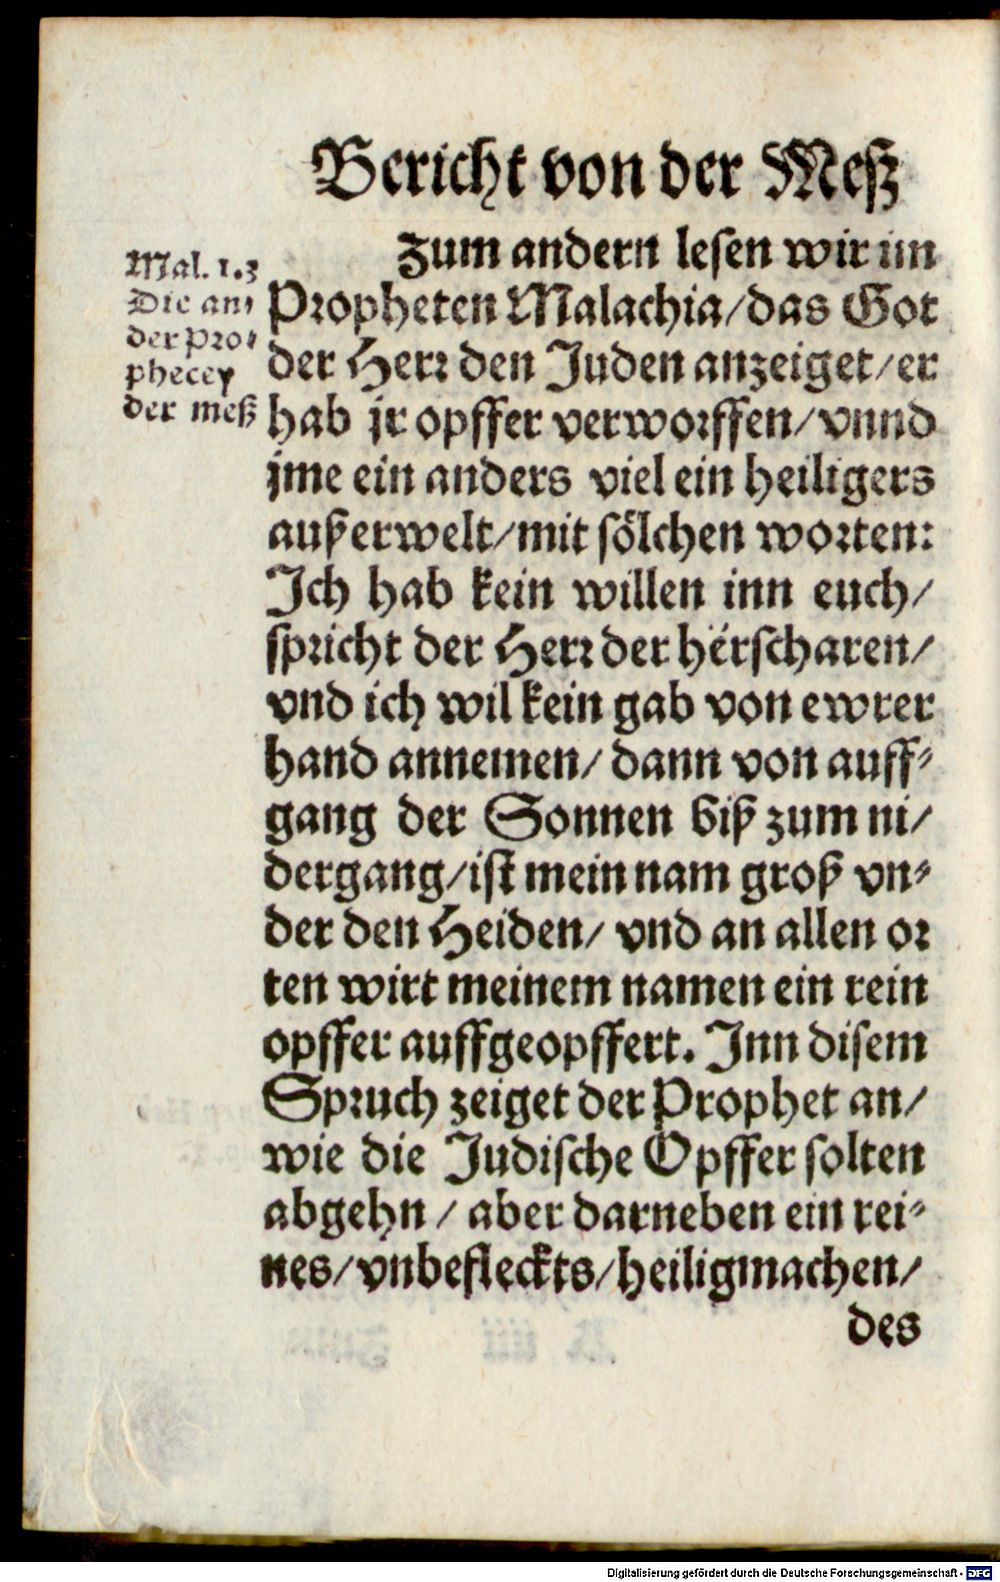 Bericht von der Meß
Mal. 1.3
Die an⸗
der pro⸗
phecey
der meß
Zum andern lesen wir im
Propheten Malachia/das Got
der Herr den Juden anzeiget/er
hab jr opffer verworffen/vnnd
jme ein anders viel ein heiligers
außerwelt/mit sölchen worten:
Ich hab kein willen inn euch/
spricht der Herr der hërscharen/
vnd ich wil kein gab von ewrer
hand annemen/dann von auff⸗
gang der Sonnen biß zum ni/
dergang/ist mein nam groß vn⸗
der den Heiden/vnd an allen or
ten wirt meinem namen ein rein
opffer auffgeopffert. Inn disem
Spruch zeiget der Prophet an/
wie die Judische Opffer solten
abgehn / aber darneben ein rei⸗
nes/vnbefleckts/heiligmachen/
des
Digitalisierung gefördert durch die Deutsche Forschungsgemeinschaft - DFG